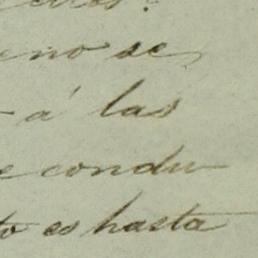 eno se
á las
e condu
to es hasta